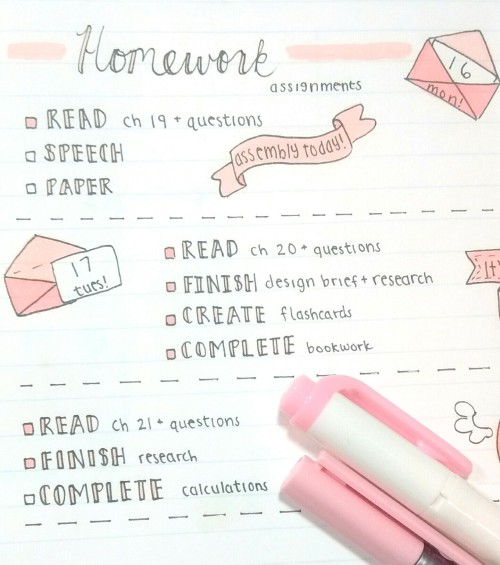 Homework
assignments
16
mon!
READ ch 19 + questions
SPEECH
PAPER
assembly today!
17
tues!
READ ch 20 + questions
FINISH design brief + research
CREATE flashcards
COMPLETE bookwork
READ ch 21 + questions
FINISH research
COMPLETE calculations